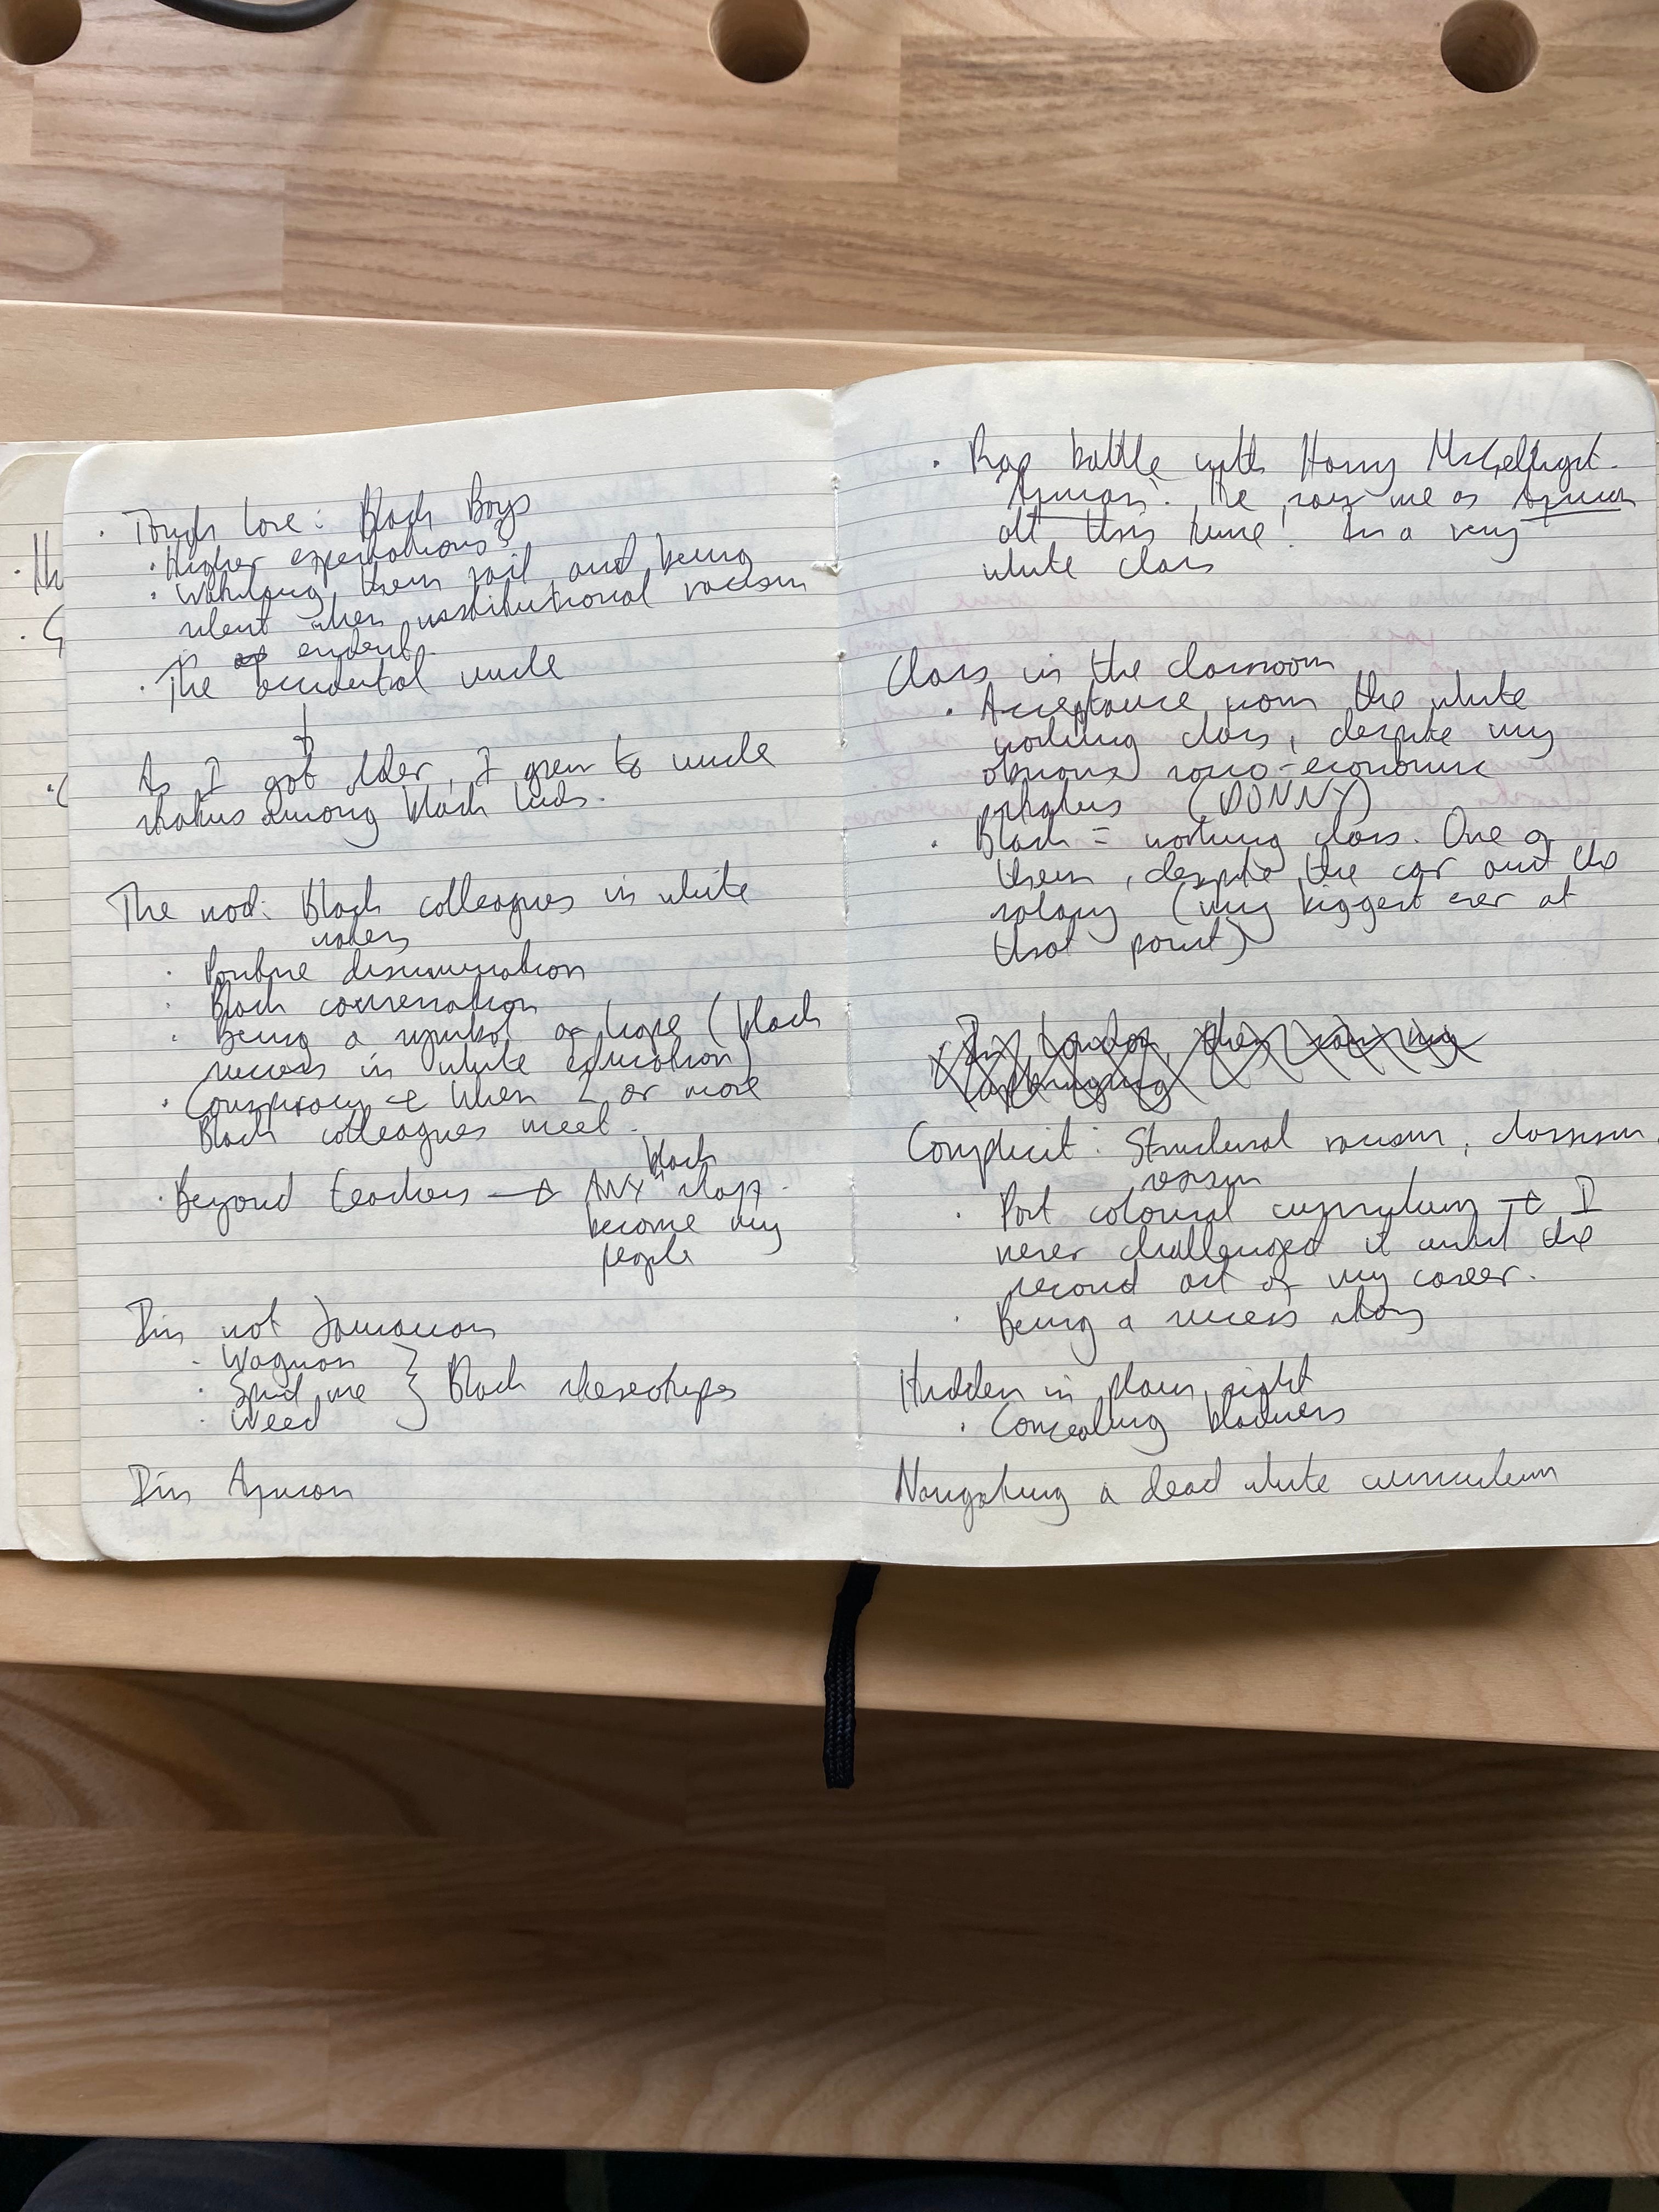 · Tough Love: Black Boys
· Higher expectations?
· Watching them fail and being
silent when institutional racism
is evident.
· The accidental uncle
As I got older, I grew to uncle
status among black kids.
The nod: Black colleagues in white
· Positive discrimination
· Black conversation
· Being a symbol of hope (black
success in white education)
· Conspiracy → When 2 or more
Black colleagues meet.
· Beyond teachers → ANY black staff
become my
people
I'm not Jamaican
· Wagwan
· Spud me
· Weed
} Black stereotypes
I'm African
· Rap battle with Harry
'African'. He saw me as African
all this time! In a very
white class
Class in the classroom
· Acceptance from the white
working class, despite my
obvious socio-economic
status (DONNY)
· Black = working class. One of
them, despite the car and the
salary (my biggest ever at
that point)
In London, they saw my
Complicit: Structural racism, classism,
· Post colonial curriculum → I
never challenged it until the
second act of my career.
· Being a success story
Hidden in plain sight
· Concealing blackness
Navigating a dead white curriculum